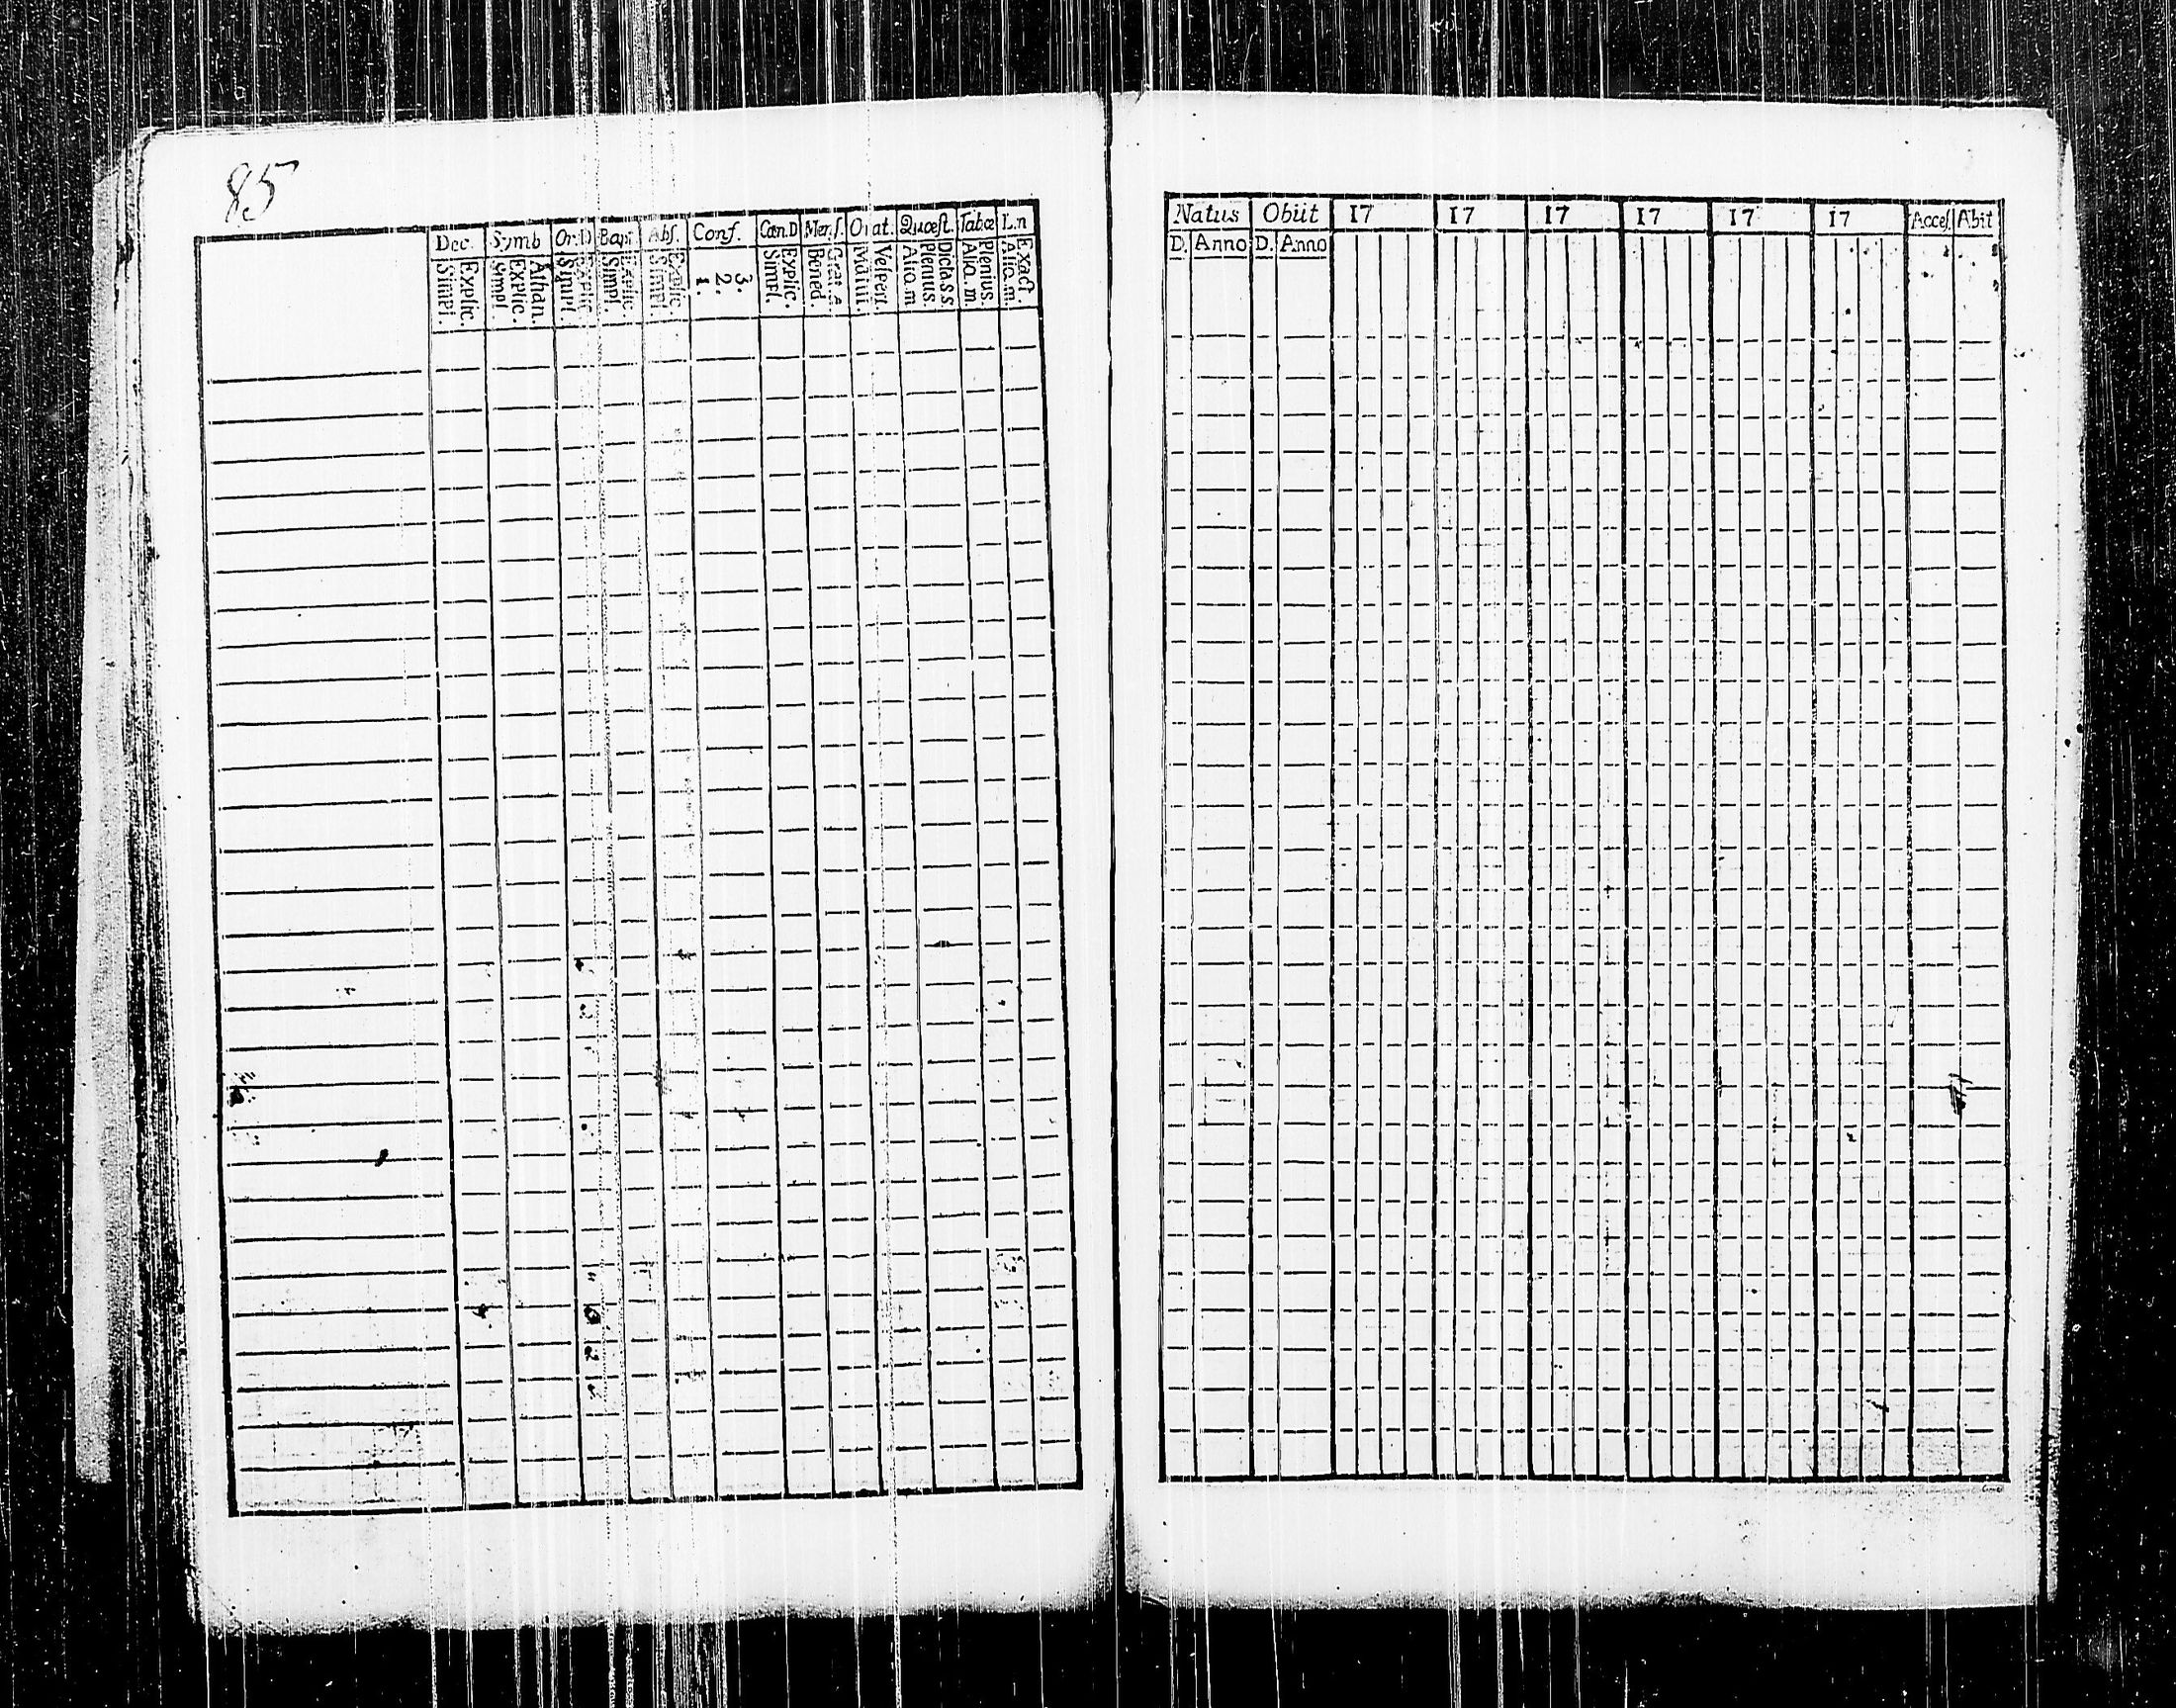 85
Dec. Symb Or.D Bapt Abſ. Conf. Cœn.D Menſ. Orat. Quæſt. Tabœ L.n
Simpl. Explic. Simpl. Explic. Athan. Simpl. Explic. Simpl. Explic. Simpl. Explic. 1. 2. 3. Simpl. Explic. Bened. Matut. Veſpert. Aliq.m Plenius. Dicta.s.s. Aliq.m. Plenius. Aliq.m. Exact.
Natus Obiit 17 17 17 17 17 17 Acceſ Abit
D. Anno D. Anno